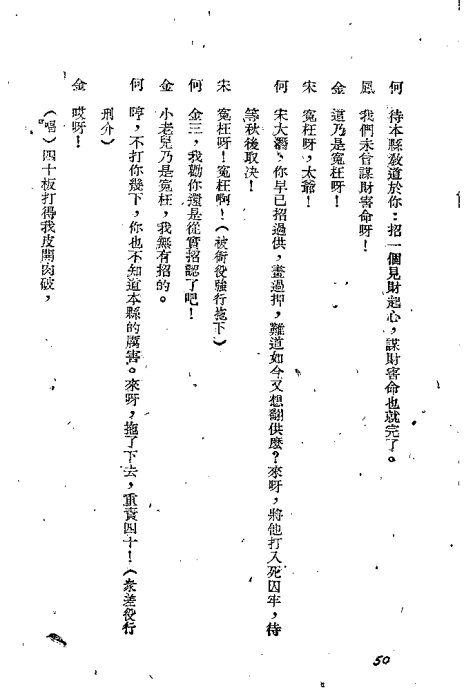 何　待本縣敎道於你：招一個見財起心，謀財害命也就完了。
鳳　我們未曾謀財害命呀！
金　這乃是寃枉呀！
宋　寃枉呀，太爺！
何　宋大潛，你早已招過供，畫過押，難道如今又想翻供麽？來呀，將他打入死囚牢，待
等秋後取決！
宋　寃枉呀！寃枉啊！（被衙役強行拖下）
何　金三，我勸你還是從實招認了吧！
金　小老兒乃是寃枉，我無有招的。
何　哼，不打你幾下，你也不知道本縣的厲害。來呀，拖了下去，重責四十！（衆差役行
刑介）
金　哎呀！
（唱）四十板打得我皮開肉破，
50